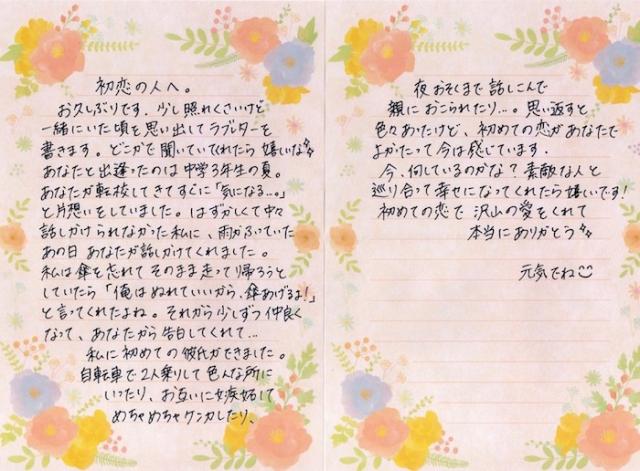 初恋の人へ。
お久しぶりです。少し照れくさいけど
一緒にいた頃を思い出してラブレターを
書きます。どこかで聞いていてくれたら嬉しいな
あなたと出逢ったのは中学3年生の夏。
あなたが転校してきてすぐに「気になる...。」
と片想いをしていました。はずかしくて中々
話しかけられなかった私に、雨がふっていた
あの日あなたが話しかけてくれました。
私は傘を忘れてそのまま走って帰ろうと
していたら「俺はぬれていいから、傘あげるよ!」
と言ってくれたよね。それから少しずつ仲良く
なって、あなたから告白してくれて...
私に初めての彼氏ができました。
自転車で2人乗りして色んな所に
いったり、お互いに嫉妬して
めちゃめちゃケンカしたり、
夜おそくまで話しこんで
親におこられたり...。思い返すと
色々あったけど、初めての恋があなたで
よかったって今は感じています。
今、何しているのかな?素敵な人と
巡り合って幸せになってくれたら嬉しいです!
初めての恋で沢山の愛をくれて
本当にありがとう
元気でね